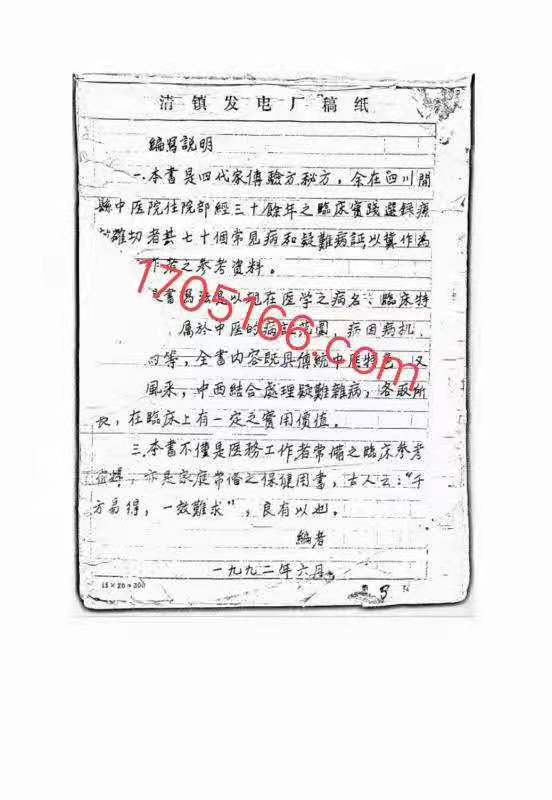 清镇发电厂稿纸
編寫説明
一.本書是四代家傳驗方秘方，余在四川開
縣中医院住院部經三十餘年之臨床實踐選録療
確切者共七十個常見病和疑難病証以冀作為
作者之參考資料。
書寫法是以現在医学之病名、臨床特
属於中医的病証范圍、病因病机、
等，全書内容既具傳統中医特色，又
風采，中西結合處理疑難雜病，各取所
長，在臨床上有一定之實用價值。
三.本書不僅是医務工作者常備之臨床參考
亦是家庭常備之保健用書，古人云："千
方易得，一效難求"，良有以也。
編者
一九九二年六月
15×20=300
1705166.com